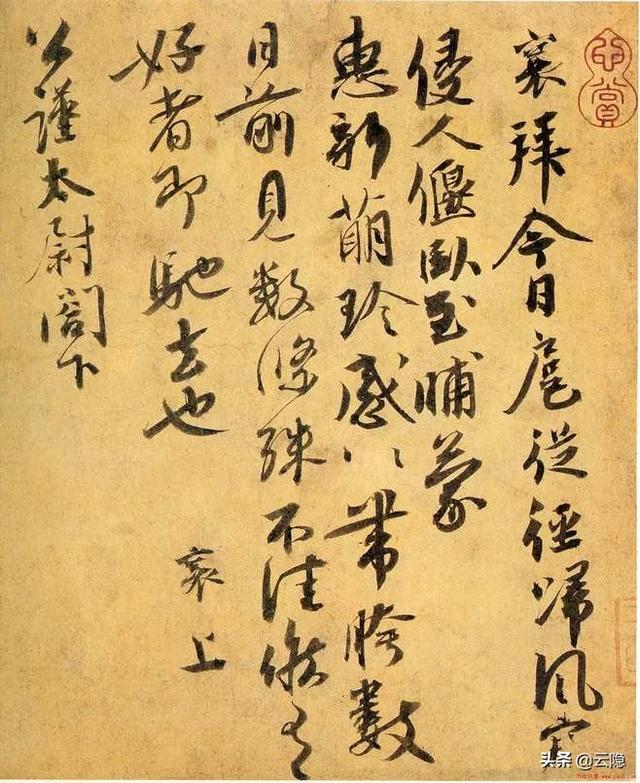 襄拜今日扈從徑歸風寒
侵人偃臥至晡蒙
惠新萌珍感〻帶胯數
日前見數條殊不佳候有
好者即馳去也
襄上
公謹太尉閣下
头条 @云隐